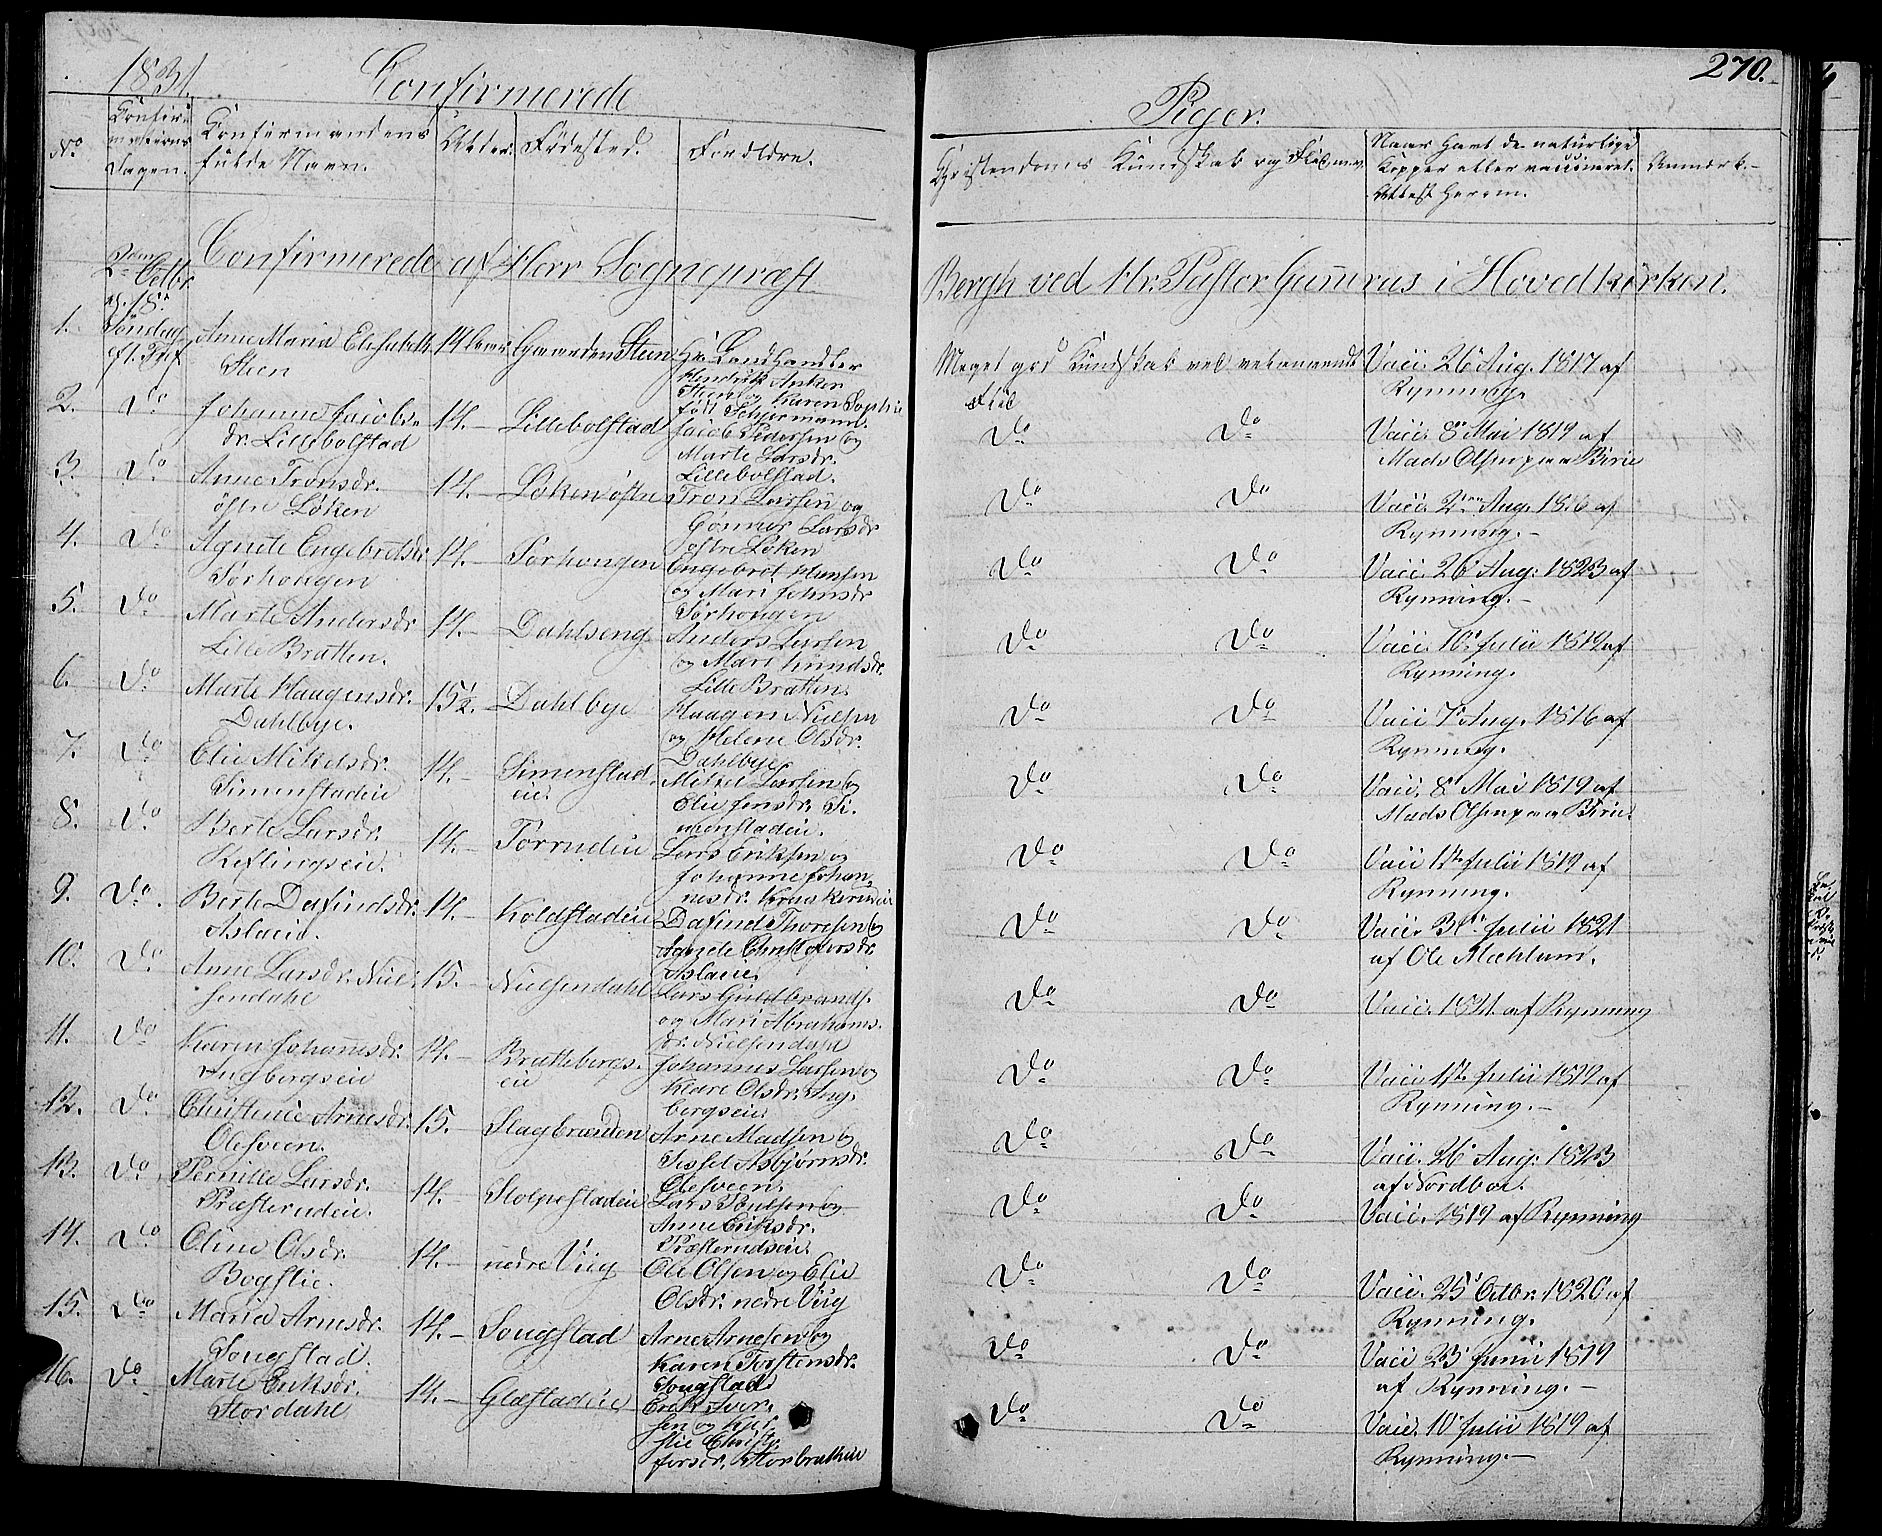 1831.
Confirmerede
Piger.
270.
No
Confir-
mations
Dagen.
Confirmandens
fulde Navn.
Alder.
Födested.
Forældre.
Christendoms Kundskab og Flid m.v.
Naar havt de naturlige
Kopper eller vaccineret.
Attest herom.
Anmærk.-
Confirmerede af Herr Sognepræst
Bergh ved Hr. Pastor Gunerus i Hovedkirken.
2den Octbr
18de
Söndag
eft. Tref.
1.
Anne Maria Elisabeth
Steen
14 Aar
Gaarden Steen
Hr. Landhandler
Hendrik Anker
Steen og Karen Sophie
föd Schiermann.
Meget god Kundskab vel vel anvendt
Flid
Vacc. 26 Aug. 1817 af
Rynning.
2. Do
Johanne Jacobs-
dr. Lillebolstad
14.- Lillebolstad
Jacob Pedersen og
Marte Larsdr.
Lillebolstad.
Do Do
Vacc. 8 Mai 1819 af
Mads Olsen paa Birie
3. Do
Anne Tronsdr.
östre Löken
14.- Löken östre
Tron Larsen og
Gunnor Larsdr
östre Löken
Do Do
Vacc. 2den Aug. 1816 af
Rynning.-
4. Do
Agnete Engebretsdr
Sörhougen
14.- Sörhougen
Engebret Hansen
og Mari Johnsdr
Sörhougen
Do Do
Vacc. 26 Aug: 1823 af
Rynning.-
5. Do
Marte Andersdr
Lille Bratten.
14.- Dahlseng
Anders Larsen
og Mari Knudsdr.
Lille Bratten.
Do Do
Vacc. 10 Julii 1819 af
Rynning.
6. Do
Marte Haagensdr.
Dahlbye.
15½. Dahlbye
Haagen Nielsen
og Helene Olsdr.
Dahlbye
Do Do
Vacc 7 Aug. 1816 af
Rynning.
7. Do
Elie Mikelsdr.
Simenstadeie
14.- Simenstad
eie.
Mikkel Larsen og
Elie Jensdr. Si-
menstadeie.
Do Do
Vacc. 8 Mai 1819 af
Mads Olsen paa Birie.
8. Do
Berte Larsdr.
Keflingseie.
14.- Torrudeie
Lars Eriksen og
Johanne Johan-
nesdr.
Do Do
Vacc 17de Julii 1819 af
Rynning.
9. Do.
Berte Dafindsdr.
Aslaeie.
14.- Koldstadeie
Dafind Thoresen og
Agnete Christophersdr.
Aslaeie.
Do Do
Vacc. 30 Julii 1821
af Ole Mæhlum.
10. Do
Anne Larsdr. Niel-
sendahl
15.- Nielsendahl
Lars Guldbrands.
og Mari Abrahams-
dr. Nielsendahl
Do Do
Vacc. 1821. af Rynning
11. Do
Karen Johannesdr.
Ingbergseie
14.- Brattebergs-
eie
Johannes Larsen og
Klare Olsdr. Ing-
bergseie.
Do Do
Vacc 17de Julii 1819 af
Rynning.-
12. Do
Christence Arnesdr.
Olesveen.
15.- Slagbrænden
Arne Madsen og
Sissel Asbjörnsdr.
Olesveen.
Do Do
Vacc. 26 Aug: 1823
af Nordboe.
13. Do
Pernille Larsdr.
Præsterudeie.
14.- Stolpestadeie
Lars Poulsen og
Anne Eriksdr.
Præsterudseie.
Do Do
Vacc. 1819 af Rynning
14. Do
Oline Olsdr.
Bogslie.
14.- nedre Viig
Ole Olsen og Elie
Olsdr. nedre Viig
Do Do
Vacc. 25 Octbr. 1820 af
Rynning.
15. Do
Maria Arnesdr.
Sougstad.
14.- Sougstad
Arne Arnesen og
Karen Torstensdr.
Sougstad
Do Do
Vacc 23 Junii 1819
af Rynning.-
16. Do
Marte Eriksdr.
Stordahl
14.- Glæstadeie
Erik Iver-
sen og Kjer-
stie Christo-
fersdr. Storbratteie
Do Do
Vacc. 10 Julii 1819 af
Rynning.-